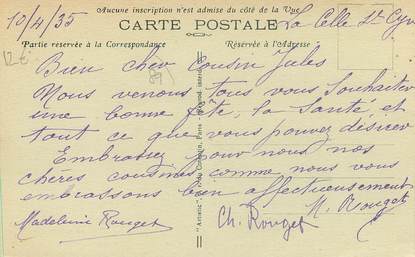 Aucune inscription n'est admise du côté de la Vue
10/4/35
CARTE POSTALE
La Celle St Cyr
Partie réservée à la Correspondance
Réservée à l'Adresse
12 €
89
Bien cher Cousin Jules
Nous venons tous vous Souhaiter
une bonne fête, la Santé, et
tout ce que vous pouvez désirer
Embrassez pour nous nos
chères cousines comme nous vous
embrassons bien affectueusement
Madeleine Rouget
Ch. Rouget
M. Rouget
"Artistic"
Paris
Prod. indust.